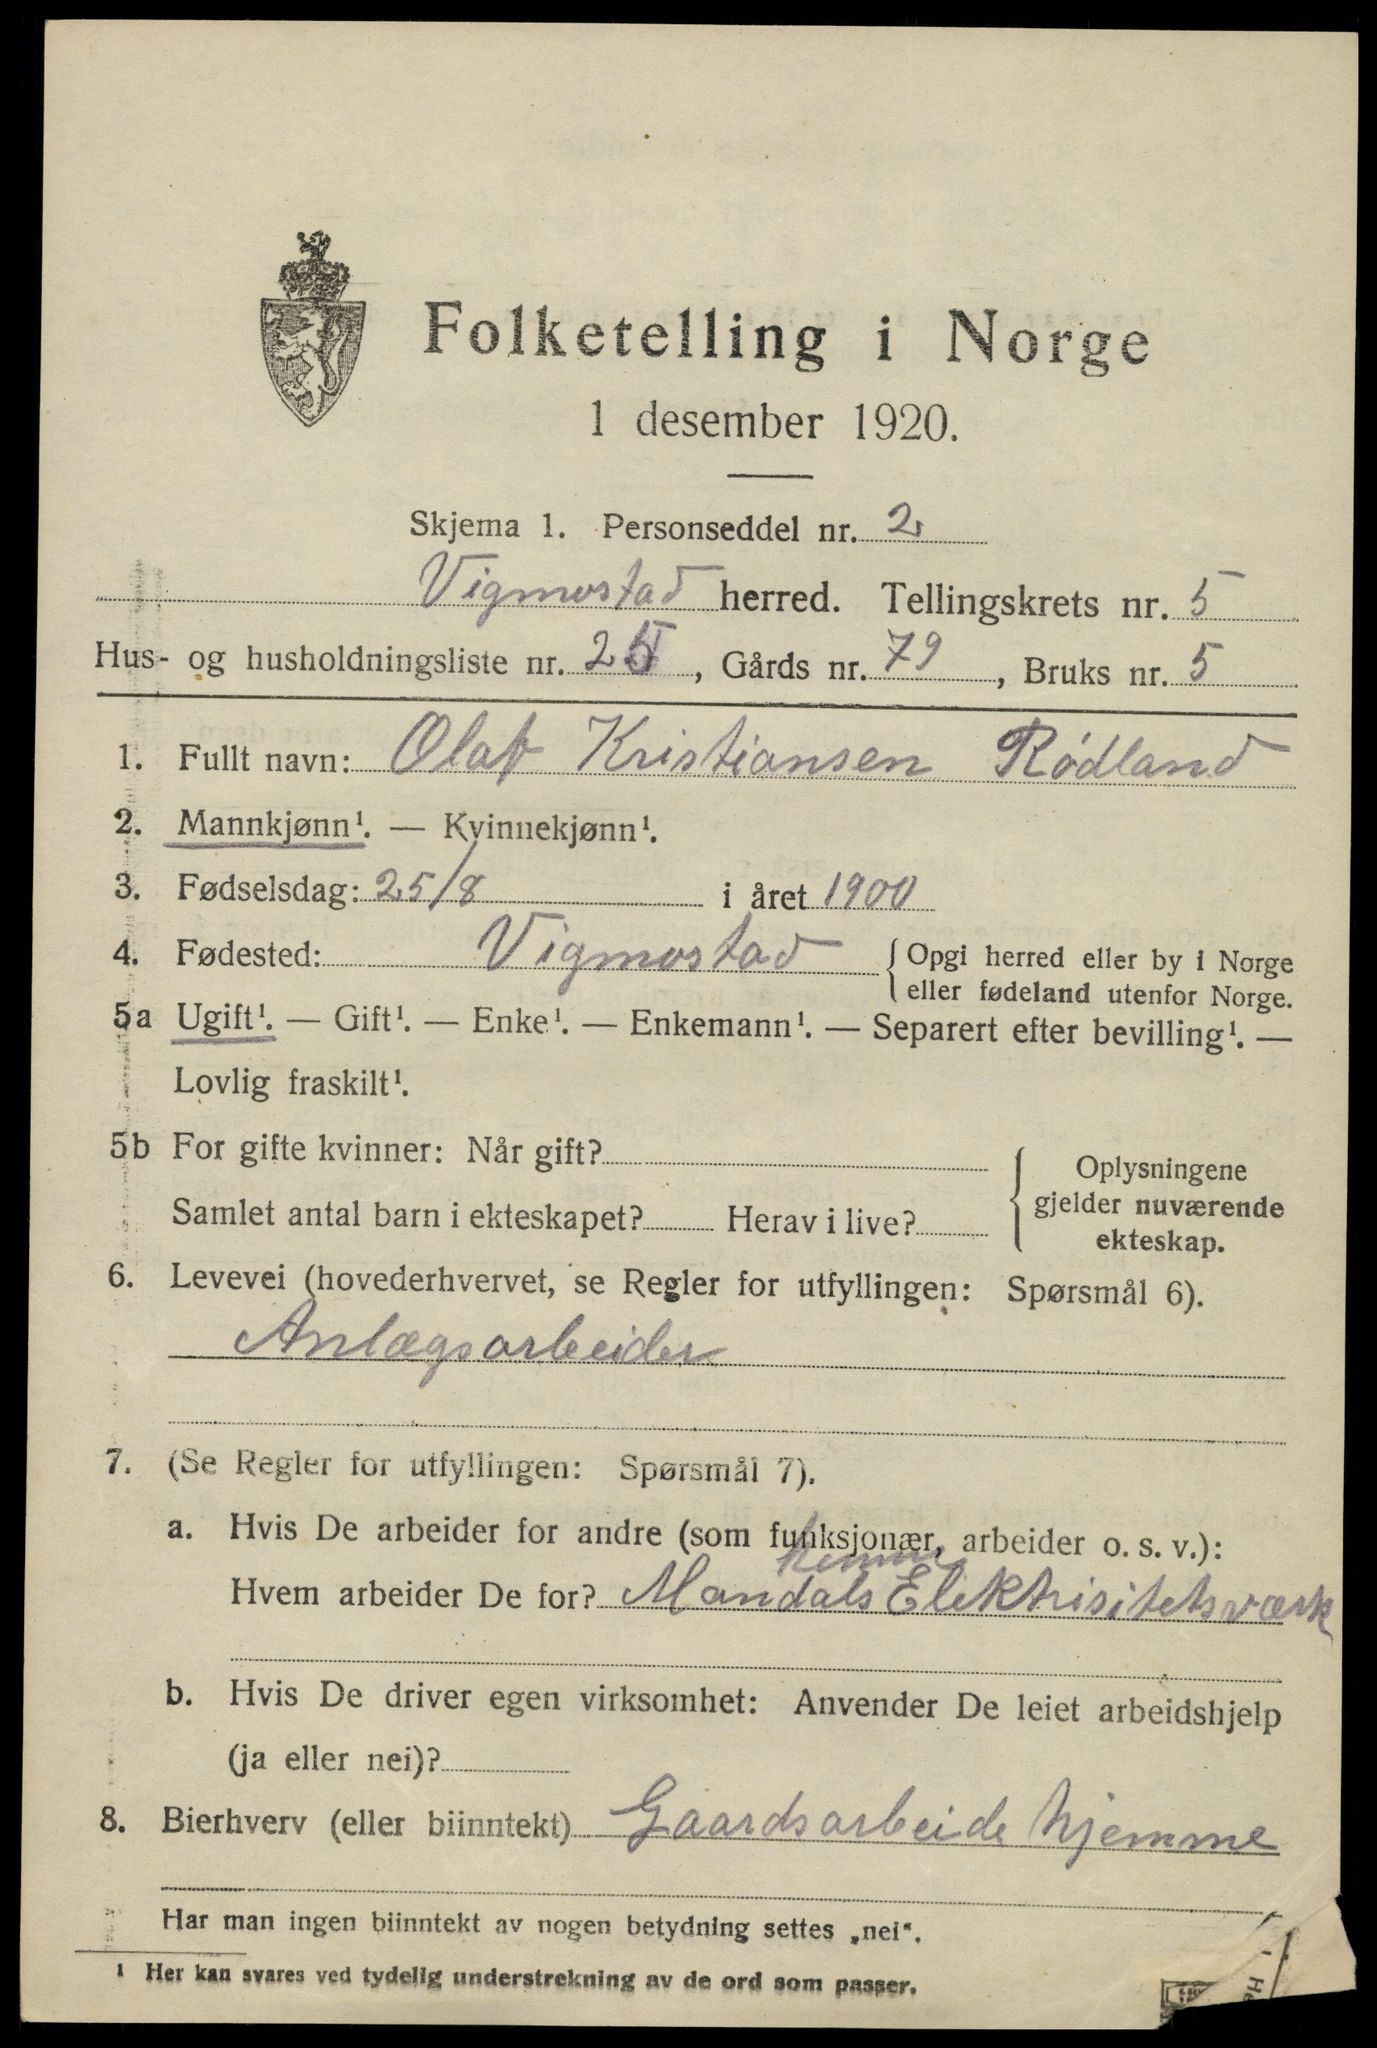 Folketelling i Norge
1 desember 1920.
Skjema 1. Personseddel nr. 2
Vigmostad herred. Tellingskrets nr. 5
Hus- og husholdningsliste nr. 25, Gårds nr. 79, Bruks nr. 5
1. Fullt navn: Olaf Kristiansen Rødland
2. Mannkjønn¹. — Kvinnekjønn¹.
3. Fødselsdag: 25/8 i året 1900
4. Fødested: Vigmostad { Opgi herred eller by i Norge
eller fødeland utenfor Norge.
5a Ugift¹. — Gift¹. — Enke¹. — Enkemann¹. — Separert efter bevilling¹. —
Lovlig fraskilt¹.
5b For gifte kvinner: Når gift?
Samlet antal barn i ekteskapet? Herav i live?
{ Oplysningene
gjelder nuværende
ekteskap.
6. Levevei (hovederhvervet, se Regler for utfyllingen: Spørsmål 6).
Anlægsarbeider
7. (Se Regler for utfyllingen: Spørsmål 7).
a. Hvis De arbeider for andre (som funksjonær, arbeider o. s. v.):
Hvem arbeider De for? Mandals Elektrisitetsværk
b. Hvis De driver egen virksomhet: Anvender De leiet arbeidshjelp
(ja eller nei)?
8. Bierhverv (eller biinntekt) Gaardsarbeide hjemme
Har man ingen biinntekt av nogen betydning settes „nei“.
¹ Her kan svares ved tydelig understrekning av de ord som passer.